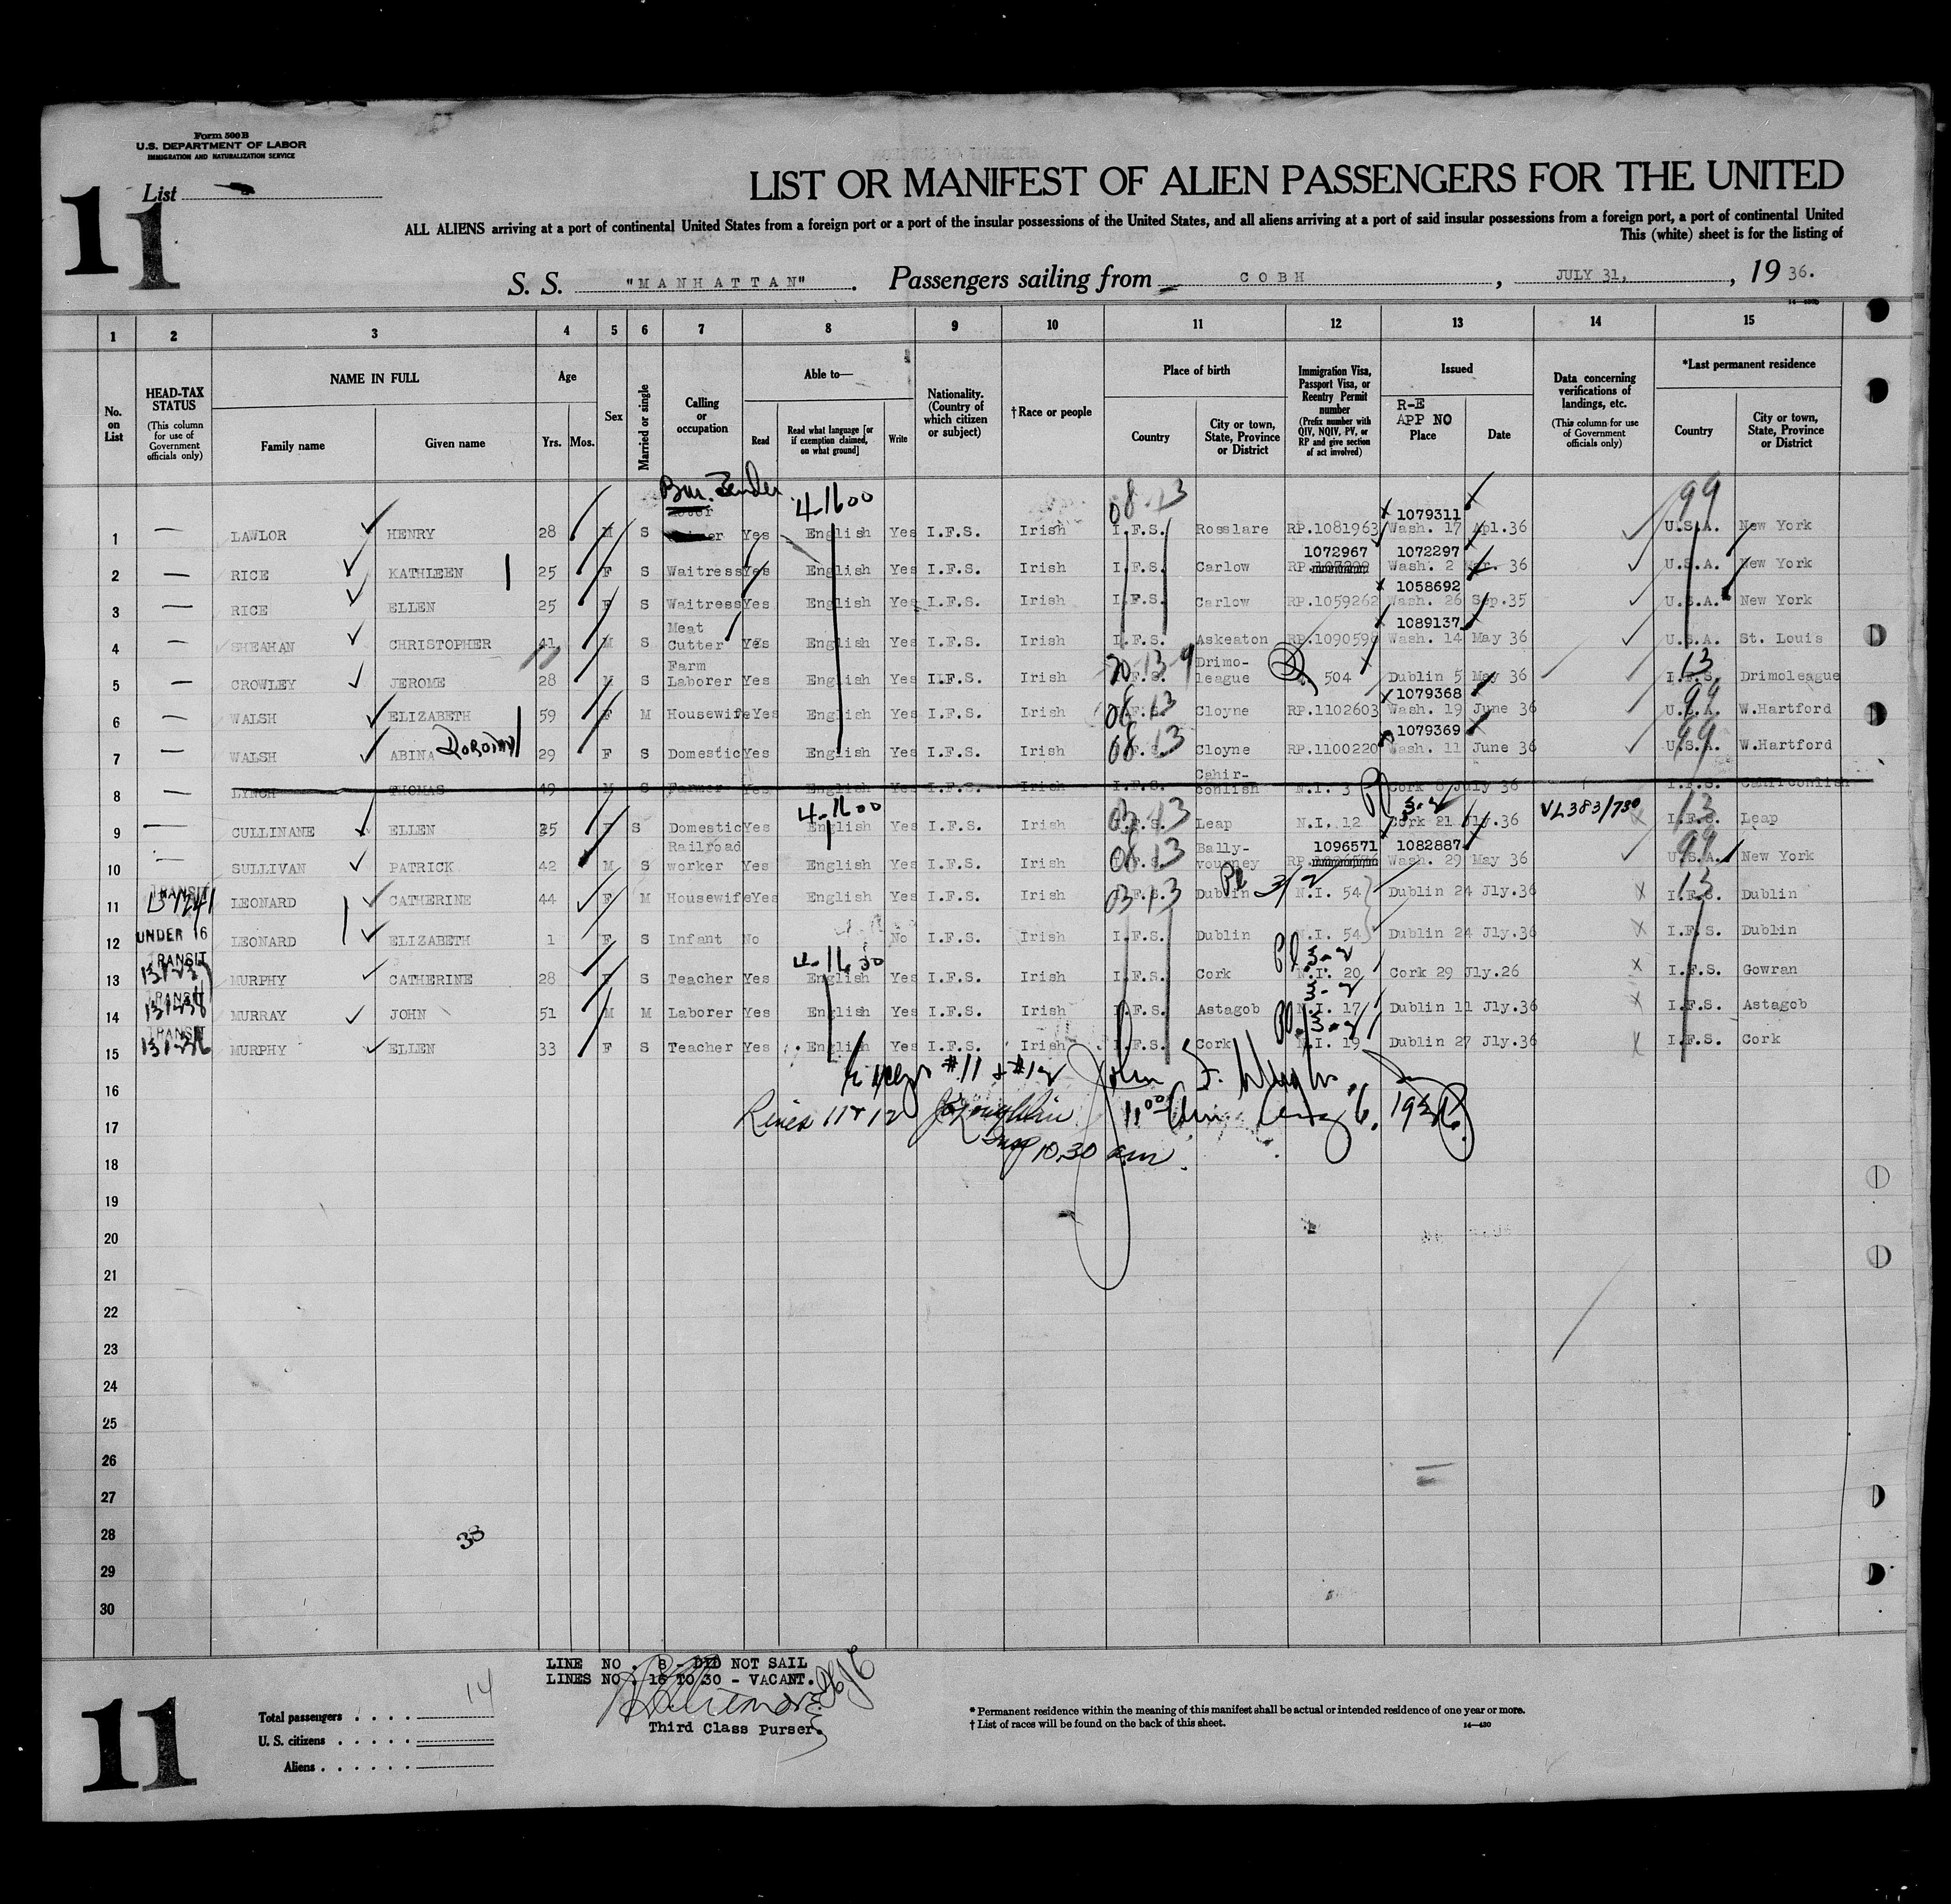 Form 500 B
U.S. DEPARTMENT OF LABOR
IMMIGRATION AND NATURALIZATION SERVICE
List
11
LIST OR MANIFEST OF ALIEN PASSENGERS FOR THE UNITED
ALL ALIENS arriving at a port of continental United States from a foreign port or a port of the insular possessions of the United States, and all aliens arriving at a port of said insular possessions from a foreign port, a port of continental United
This (white) sheet is for the listing of
S. S. "MANHATTAN". Passengers sailing from COBH, JULY 31, 1936.
1 2 3 4 5 6 7 8 9 10 11 12 13 14 15
No. on List
HEAD-TAX STATUS (This column for use of Government officials only)
NAME IN FULL Family name Given name
Age Yrs. Mos.
Sex
Married or single
Calling or occupation
Able to— Read Read what language [or if exemption claimed, on what ground] Write
Nationality. (Country of which citizen or subject)
†Race or people
Place of birth Country City or town, State, Province or District
Immigration Visa, Passport Visa, or Reentry Permit number (Prefix number with QIV, NQIV, PV, or RP and give section of act involved)
Issued R-E APP NO Place Date
Data concerning verifications of landings, etc. (This column for use of Government officials only)
*Last permanent residence Country City or town, State, Province or District
4-1600 08-13 99
1079311
1 — LAWLOR HENRY 28 M S Yes English Yes I.F.S. Irish I.F.S. Rosslare RP.1081963 Wash. 17 Apl.36 U.S.A. New York
1072967 1072297
2 — RICE KATHLEEN 25 F S Waitress Yes English Yes I.F.S. Irish I.F.S. Carlow RP. Wash. 2 36 U.S.A. New York
1058692
3 — RICE ELLEN 25 F S Waitress Yes English Yes I.F.S. Irish I.F.S. Carlow RP.1059262 Wash. 26 Sep.35 U.S.A. New York
1089137
4 — SHEAHAN CHRISTOPHER 41 M S Meat Cutter Yes English Yes I.F.S. Irish I.F.S. Askeaton RP.109059 Wash. 14 May 36 U.S.A. St. Louis
5 — CROWLEY JEROME 28 M S Farm Laborer Yes English Yes I.F.S. Irish Drimoleague 504 Dublin 5 May 36 I.F.S. 13 Drimoleague
1079368
6 — WALSH ELIZABETH 59 F M Housewife Yes English Yes I.F.S. Irish 08.13 Cloyne RP.1102603 Wash. 19 June 36 U.S.A. 99 W.Hartford
1079369
7 — WALSH ABINA 29 F S Domestic Yes English Yes I.F.S. Irish 08.13 Cloyne RP.1100220 Wash. 11 June 36 U.S.A. 99 W.Hartford
8 LYNCH THOMAS 49 M S Farmer Yes English Yes I.F.S. Irish I.F.S. Cahir-conlish N.I. 3 Cork 8 July 36 I.F.S.
4-1600 3-2
9 — CULLINANE ELLEN 25 F S Domestic Yes English Yes I.F.S. Irish 03.13 Leap N.I. 12 Cork 21 Jly.36 VL383/730 I.F.S. 13 Leap
1096571 1082887
10 — SULLIVAN PATRICK 42 M S Railroad worker Yes English Yes I.F.S. Irish 08.13 Bally-vourney RP. Wash. 29 May 36 U.S.A. 99 New York
11 TRANSIT LEONARD CATHERINE 44 F M Housewife Yes English Yes I.F.S. Irish 03.13 Dublin N.I. 54 Dublin 24 Jly.36 I.F.S. 13 Dublin
12 UNDER 16 LEONARD ELIZABETH 1 F S Infant No No I.F.S. Irish I.F.S. Dublin N.I. 54 Dublin 24 Jly.36 I.F.S. Dublin
13 TRANSIT MURPHY CATHERINE 28 F S Teacher Yes English Yes I.F.S. Irish I.F.S. Cork N.I. 20 Cork 29 Jly.26 I.F.S. Gowran
14 TRANSIT MURRAY JOHN 51 M M Laborer Yes English Yes I.F.S. Irish I.F.S. Astagob N.I. 17 Dublin 11 Jly.36 I.F.S. Astagob
15 TRANSIT MURPHY ELLEN 33 F S Teacher Yes English Yes I.F.S. Irish I.F.S. Cork N.I. 19 Dublin 27 Jly.36 I.F.S. Cork
16 #11 & #12 John F.
17 Lines 11 & 12 11 00 Am Aug 6, 1936
18 Insp 10.30 am.
19
20
21
22
23
24
25
26
27
28 38
29
30
LINE NO. 8 - DID NOT SAIL
LINES NO. 16 TO 30 - VACANT.
Third Class Purser.
11
Total passengers . . . . 14
U. S. citizens . . . . .
Aliens . . . . . .
* Permanent residence within the meaning of this manifest shall be actual or intended residence of one year or more.
† List of races will be found on the back of this sheet. 14—430